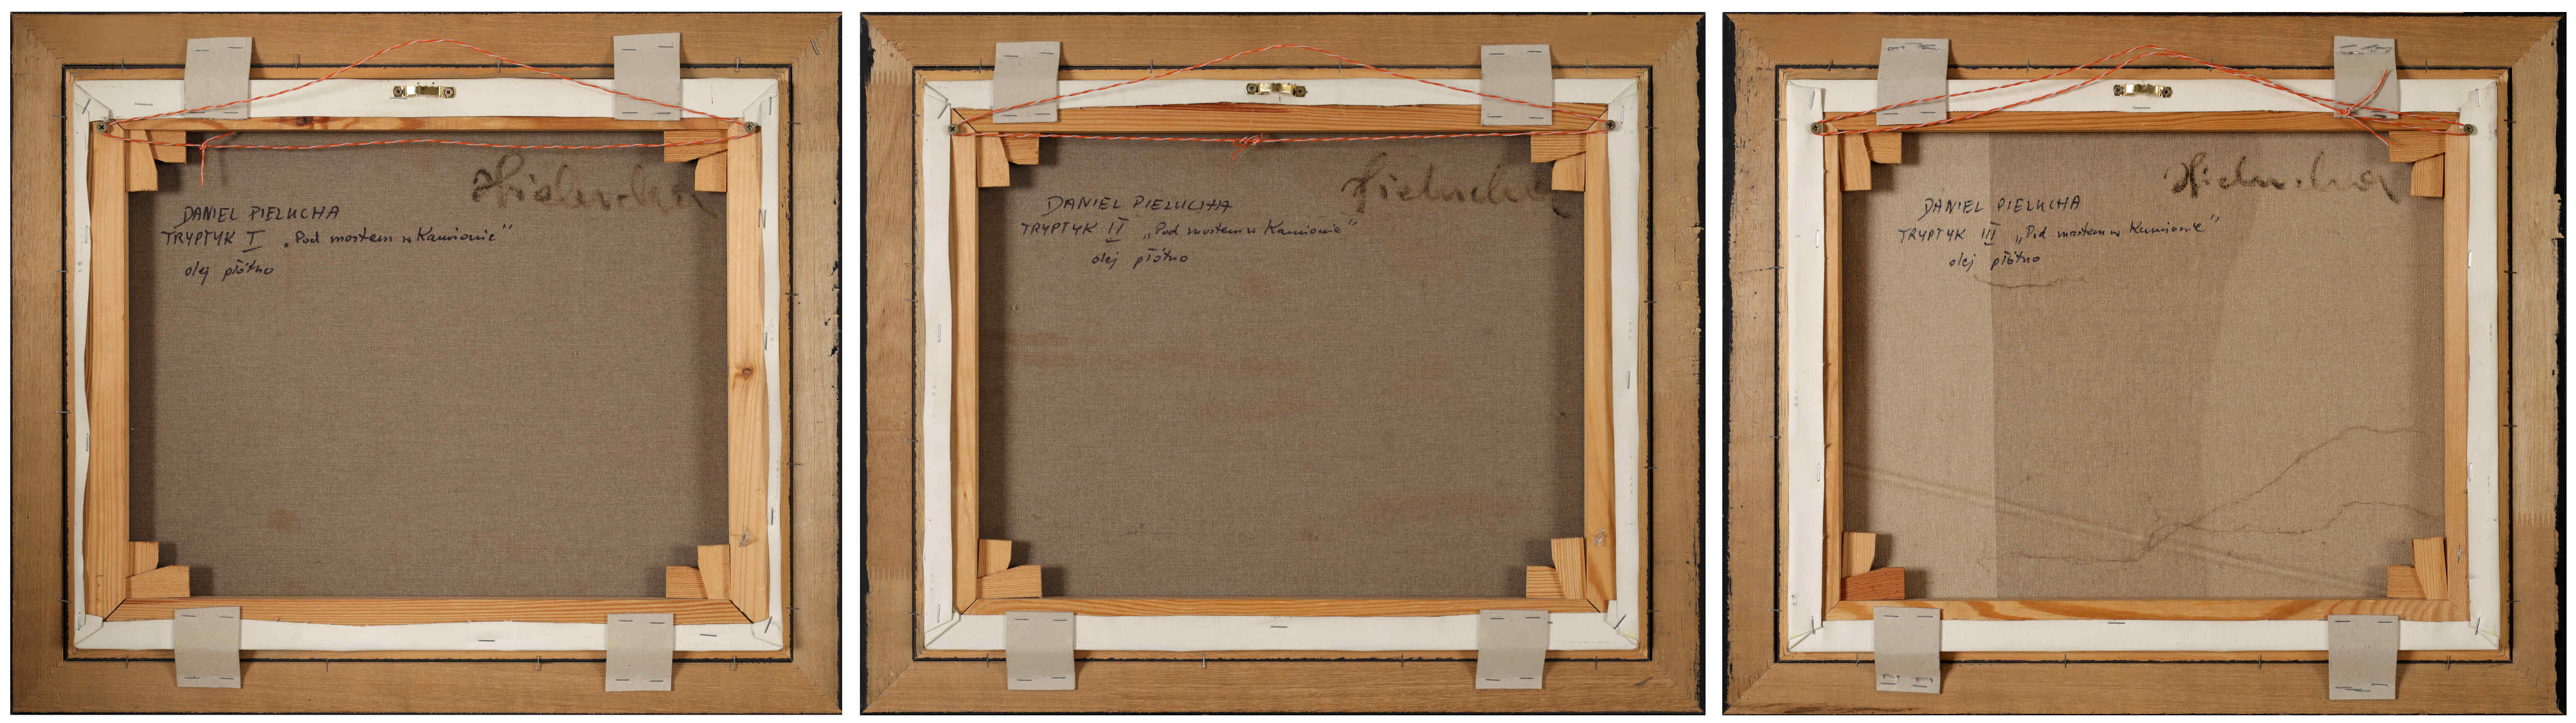 Pielucha
DANIEL PIELUCHA
TRYPTYK I „Pod mostem w Kamionie”
olej płótno
Pielucha
DANIEL PIELUCHA
TRYPTYK II „Pod mostem w Kamionie”
olej płótno
Pielucha
DANIEL PIELUCHA
TRYPTYK III „Pod mostem w Kamionie”
olej płótno